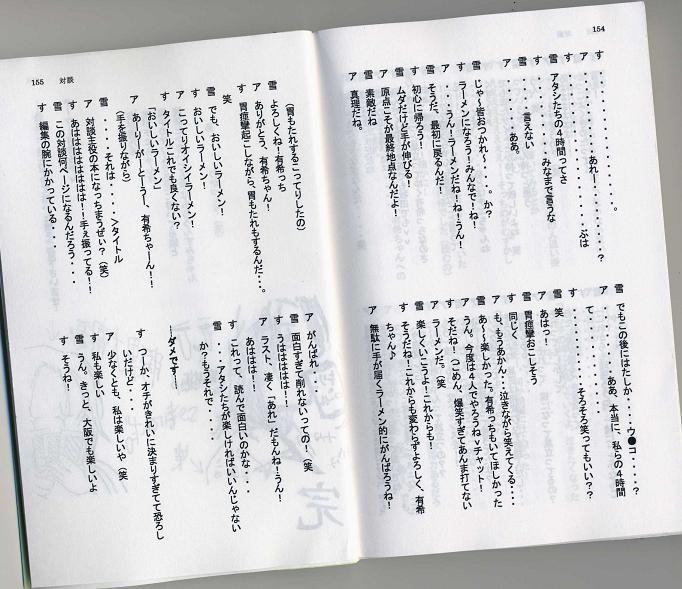 154
す ・・・・・・・・・・・・・・・・。
ア ・・・・・・・・・あれー・・・・・・・・・・？
す ・・・・・・・・・・・・・・・・ぶは
雪 アタシたちの４時間ってさ
す ・・・・・・・・みなまで言うな
雪 ・・・・言えない
ア ・・・・・・ああ。
雪 じゃ～皆おつかれ～・・・。か？
す ラーメンになろう！みんなで！ね！
ア ・・・うん！ラーメンだね！ね！うん！
雪 そうだ、最初に戻るんだ！
す 初心に帰ろう！
雪 ムダだけど手が伸びる！
ア 原点こそが最終地点なんだよ！
雪 素敵だね
ア 真理だね。
雪 でもこの後にはたしか・・・・ウ●コ・・・・？
ア ・・・・・・・・・ああ、本当に、私らの４時間
て・・・・・・・
す ・・・・・・・・・そろそろ笑ってもいい？？
雪 笑
ア あはっ！
雪 胃痙攣おこしそう
す 同じく
ア も、もうあかん・・・泣きながら笑えてくる・・・・
雪 あ～～楽しかった。有希っちもいてほしかった
ア うん。今度は４人でやろうねｖチャット！
す そだね！ごめん、爆笑すぎてあんま打てない
雪 ラーメンだ。（笑
ア 楽しくいこうよ！これからも！
す そうだね！これからも変わらずよろしく、有希
ちゃん♪
ア 無駄に手が届くラーメン的にがんばろうね！
155 対談
（胃もたれするこってりしたの）
雪 よろしくね！有希っち
ア ありがとう、有希ちゃん！
す 胃痙攣起こしながら、胃もたれもするんだ・・・。
笑
雪 でも、おいしいラーメン！
す おいしいラーメン！
ア こってりオイシイラーメン！
す タイトルこれでも良くない？
「おいしいラーメン」
ア ありーりーがーとーうー、有希ちゃーん！！
（手を振りながら）
雪 ・・・・それは・・・・＞タイトル
ア 対談主役の本になっちまうぜい？（笑）
す あはははははははは！！手ぇ振ってる！！
雪 この対談何ページになるんだろう・・・
す 編集の腕にかかっている・・・・
ア がんばれ・・・
雪 面白すぎて削れないっての！（笑
す うはははははは！！
ア ラスト、凄く「あれ」だもんね！うん！
雪 あはははは！！
す これって、読んで面白いのかな・・・
雪 ・・・アタシたちが楽しければいいんじゃない
か？もうそれで・・・・
――ダメです――
す つーか、オチがきれいに決まりすぎてて恐ろし
いだけど・・・
ア 少なくとも、私は楽しいや（笑
す 私も楽しい
雪 うん。きっと、大阪でも楽しいよ
す そうね！
完